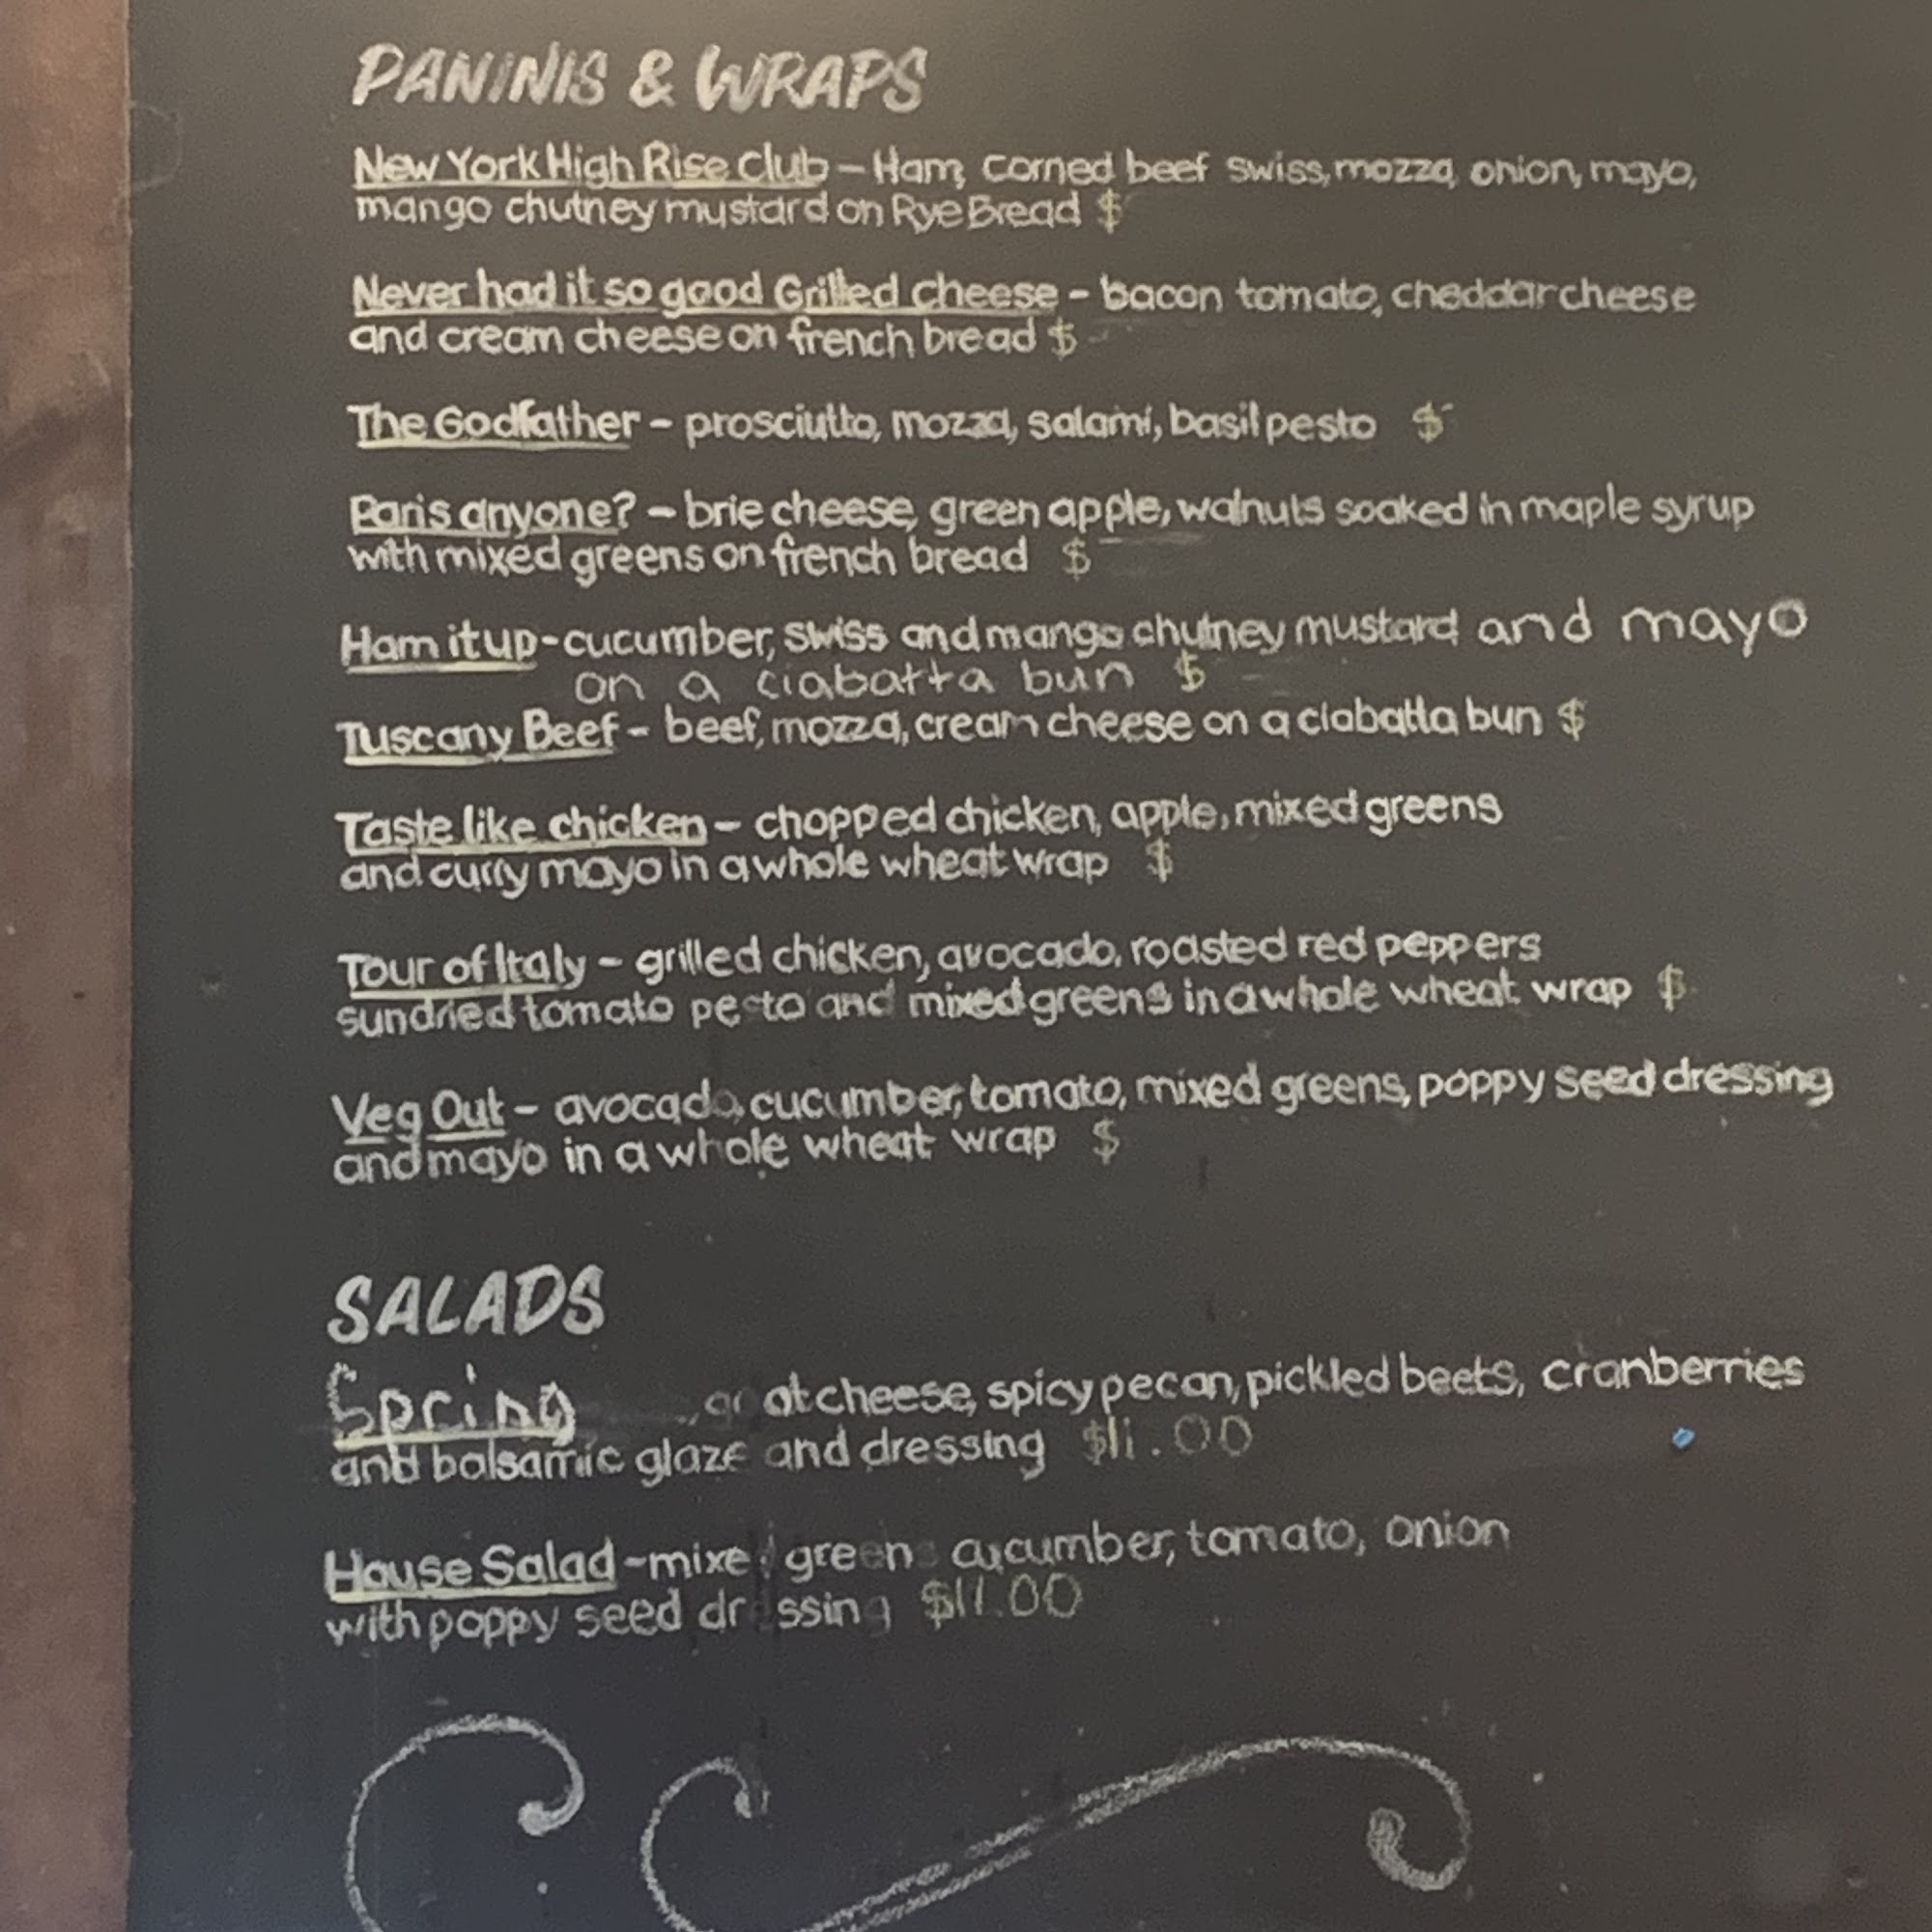 PANINIS & WRAPS
New York High Rise Club - Ham, corned beef swiss, mozza, onion, mayo,
mango chutney mustard on Rye Bread $
Never had it so good Grilled cheese - bacon tomato, cheddar cheese
and cream cheese on french bread $
The Godfather - prosciutto, mozza, salami, basil pesto $
Paris anyone? - brie cheese, green apple, walnuts soaked in maple syrup
with mixed greens on french bread $
Ham it up - cucumber, swiss and mango chutney mustard and mayo
on a ciabatta bun $
Tuscany Beef - beef, mozza, cream cheese on a ciabatta bun $
Taste like chicken - chopped chicken, apple, mixed greens
and curry mayo in a whole wheat wrap $
Tour of Italy - grilled chicken, avocado, roasted red peppers
sundried tomato pesto and mixed greens in a whole wheat wrap $
Veg Out - avocado, cucumber, tomato, mixed greens, poppy seed dressing
and mayo in a whole wheat wrap $
SALADS
Spring , goat cheese, spicy pecan, pickled beets, cranberries
and balsamic glaze and dressing $11.00
House Salad - mixed greens cucumber, tomato, onion
with poppy seed dressing $11.00